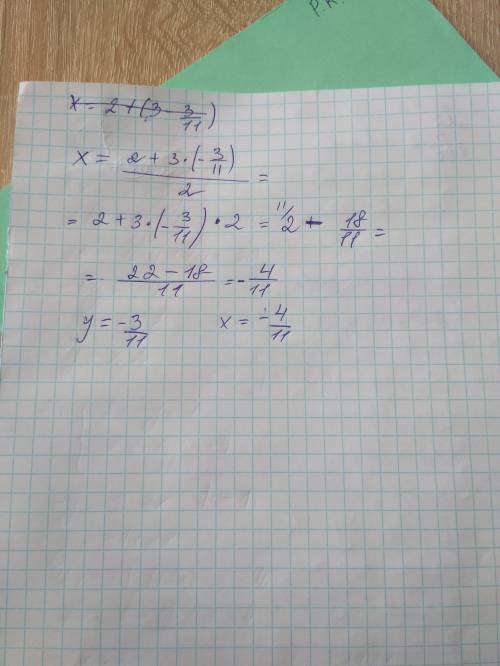 P.R.
x = 2 + (3 - 3/11)
x = (2 + 3·(-3/11))/2 =
= 2 + 3·(-3/11)·2 = 11/ 2 - 18/11 =
= (22 - 18)/11 = -4/11
y = -3/11 x = -4/11